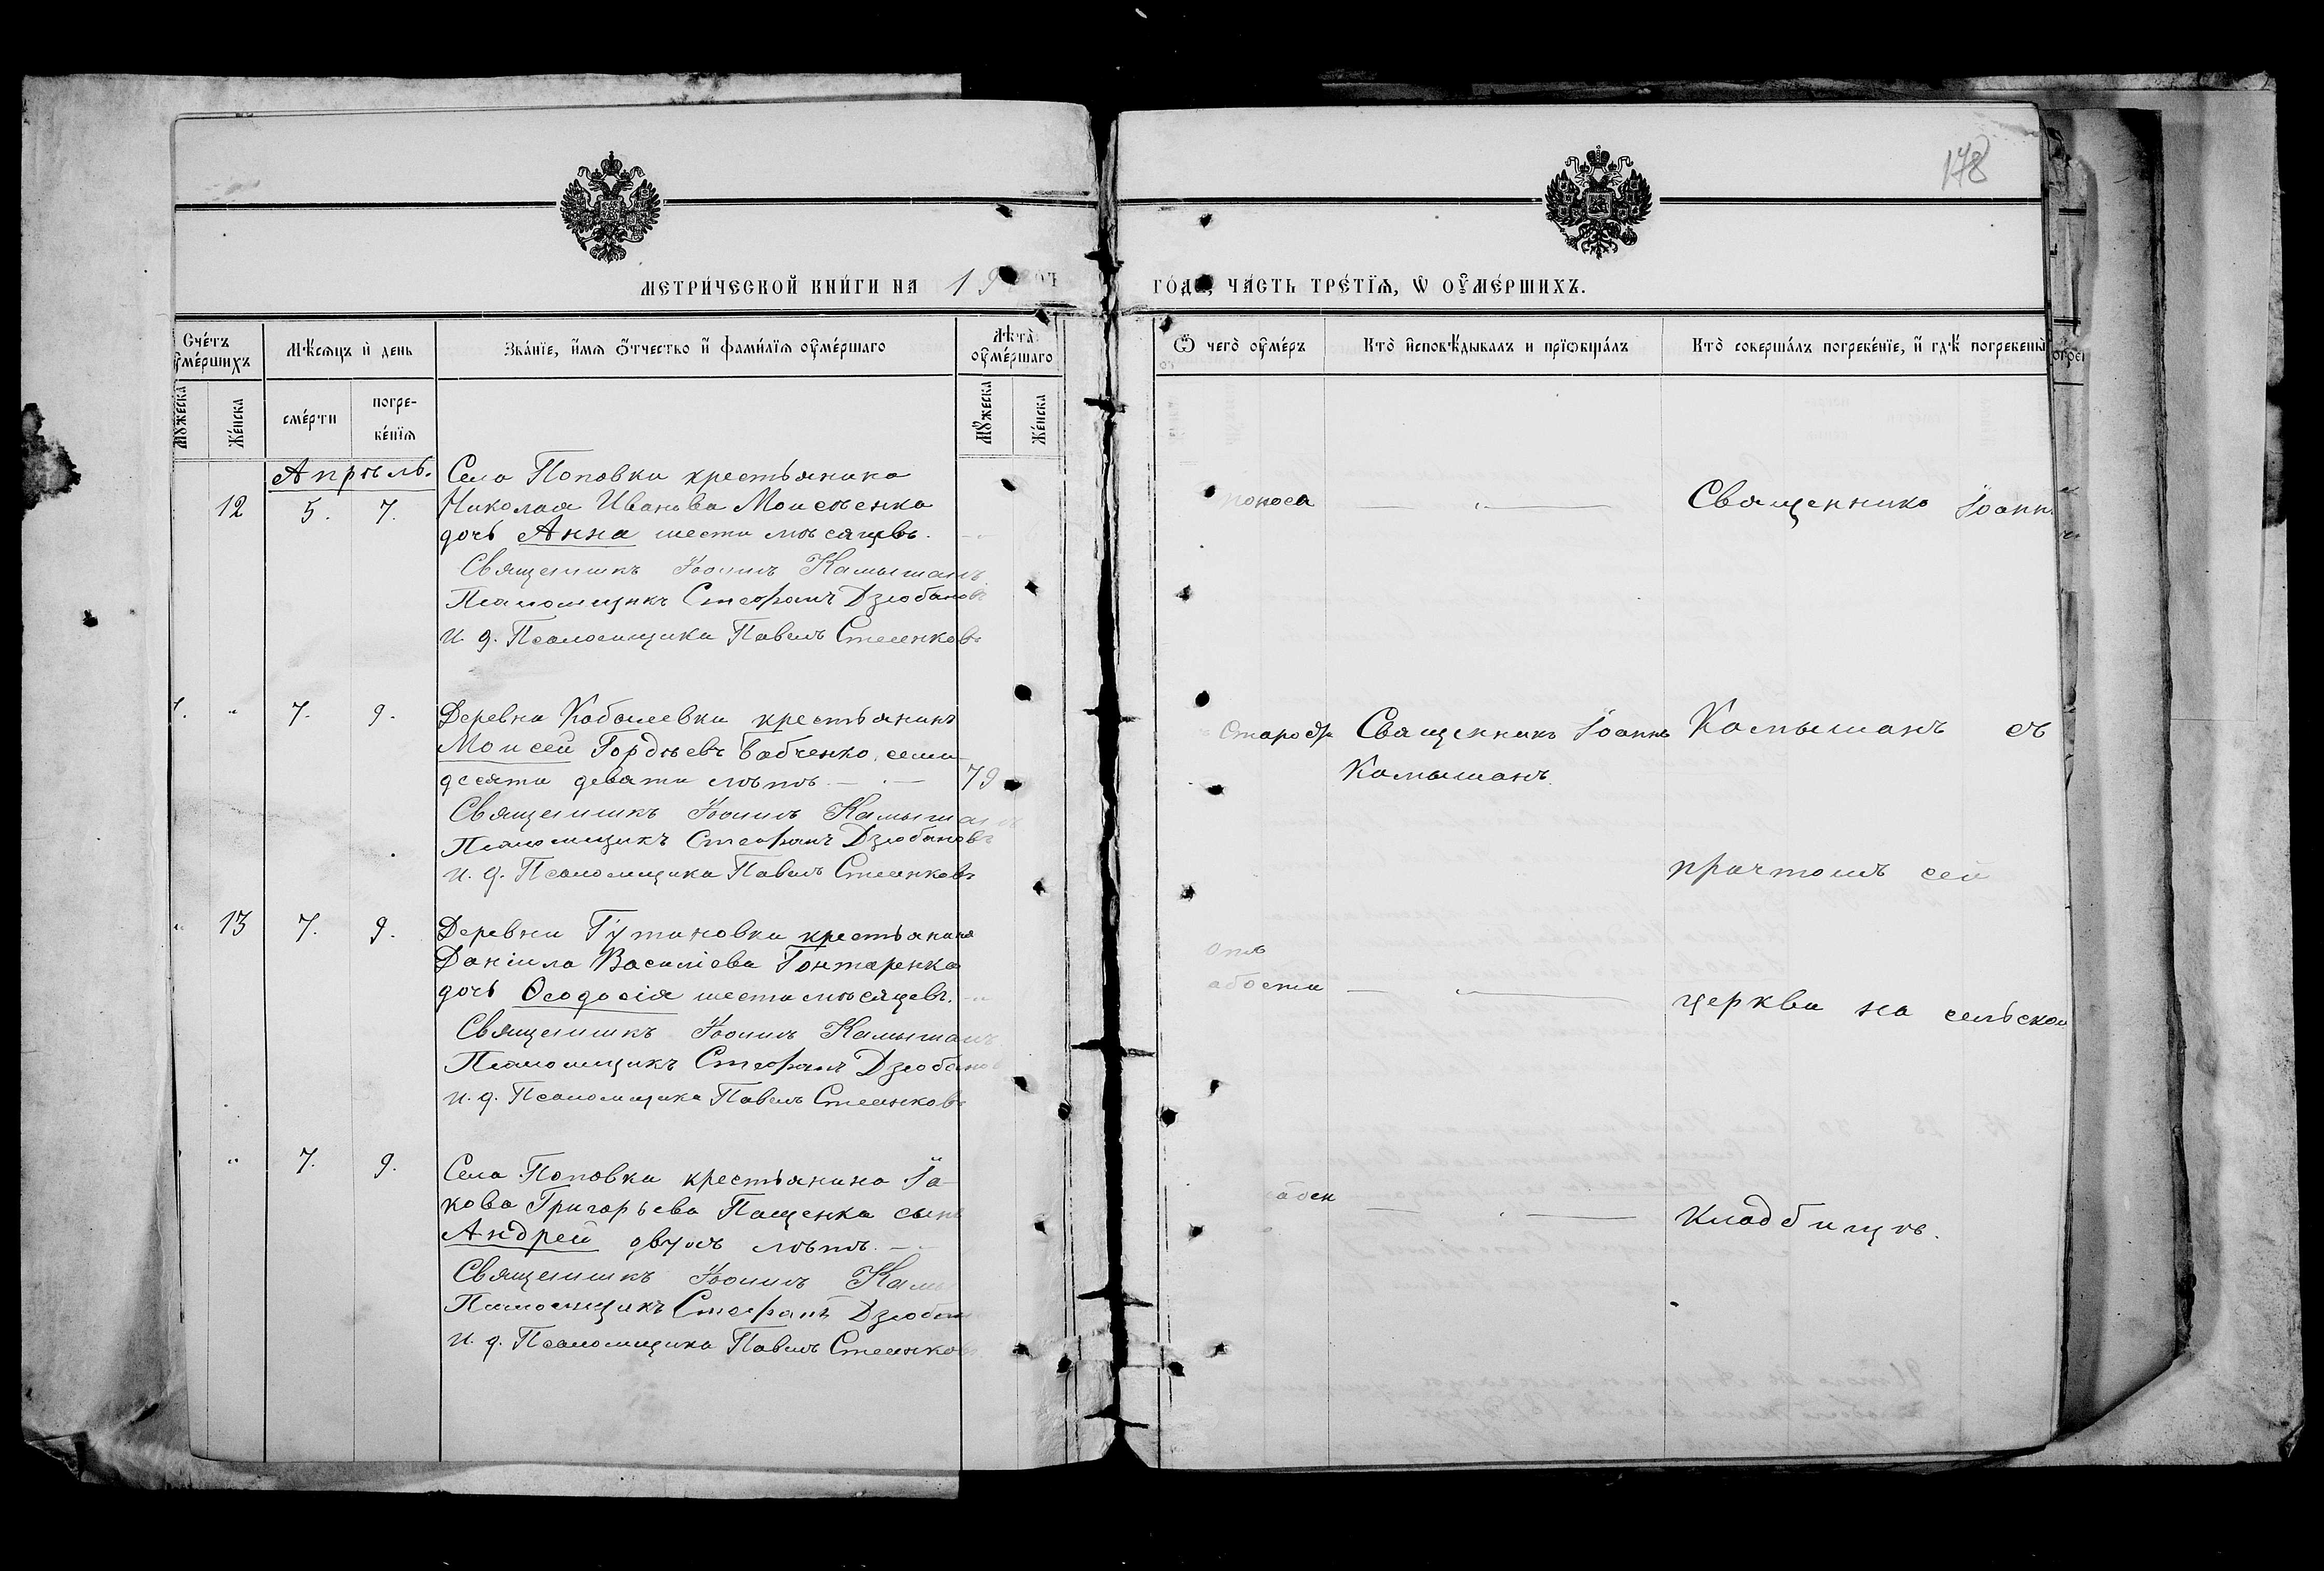 178
МЕТРИ́ЧЕСКОЙ КНИ́ГИ НА 19
ГО́ДЪ, ЧА́СТЬ ТРЕ́ТЇѦ, Ѡ҆ ОУ҆МЕ́РШИХЪ.
Сче́тъ оу҆ме́ршихъ
Мꙋ́жеска
Же́нска
Мѣ́сѧцъ и҆ день
сме́рти
погре-
бе́нїѧ
Зва́нїе, и҆́мѧ ѻ҆́тчество и҆ фами́лїѧ оу҆ме́ршаго
Лѣ́та̀ оу҆ме́ршаго
Мꙋ́жеска
Же́нска
Ѿ чегѡ̀ оу҆ме́ръ
Кто̀ и҆сповѣ́дывалъ и прїѡбща́лъ
Кто̀ соверша́лъ погребе́нїе, и҆ гдѣ̀ погребены̀
Апрѣль.
12 5. 7.
Села Поповки крестьянина
Николая Иванова Моисѣенка
дочь Анна шести мѣсяцевъ.
Священникъ Іоаннъ Камышанъ
Псаломщикъ Стефанъ Дзюбановъ
и. д. Псаломщика Павелъ Стеенковъ
поноса
Священникъ Іоаннъ
" 7. 9.
Деревни Кобылевки крестьянинъ
Моисей Гордѣевъ Бабченко, семи-
десяти девяти лѣтъ. 79
Священникъ Іоаннъ Камышанъ
Псаломщикъ Стефанъ Дзюбановъ
и. д. Псаломщика Павелъ Стеенковъ
Старости
Священникъ Іоаннъ
Камышанъ.
Камышанъ съ
причтомъ сей
" 13 7. 9.
Деревни Гутиновки крестьянина
Даніила Василіева Гонтаренка
дочь Ѳеодосія шести мѣсяцевъ.
Священникъ Іоаннъ Камышанъ
Псаломщикъ Стефанъ Дзюбанов
и. д. Псаломщика Павелъ Стеенковъ
Отъ
абости
церкви на сельском
" 7. 9.
Села Поповки крестьянина Іа-
кова Григорьева Пащенка сынъ
Андрей двухъ лѣтъ.
Священникъ Іоаннъ Камы
Псаломщикъ Стефанъ Дзюбан
и. д. Псаломщика Павелъ Стеенковъ
кладбищѣ.